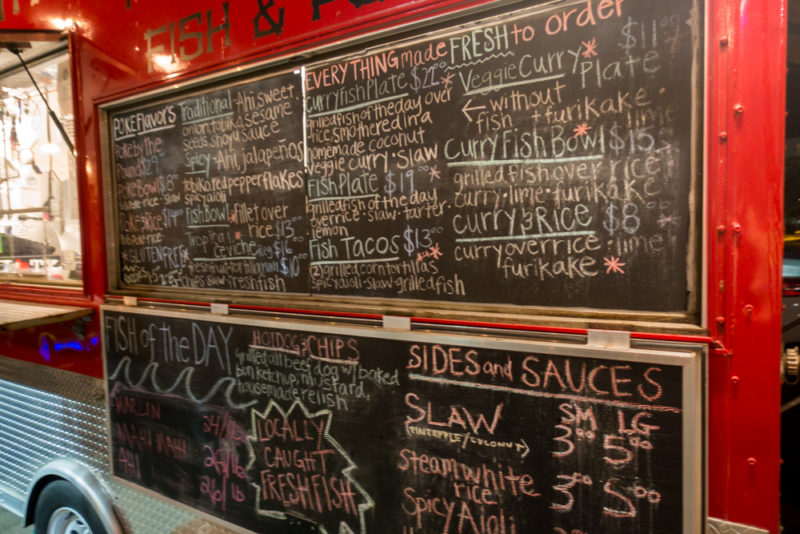 FISH &
POKE FLAVOR'S
Poke by the
Pound $29
Poke Bowl $18
Poke & Rice $14
*GLUTEN FREE*
Traditional - Ahi sweet
onion tobiko sesame
seeds shoyu sauce
Spicy - Ahi, jalapeños
tobiko red pepper flakes
spicy aioli
Fish Bowl * fillet over
rice $13
Tropical
ceviche
chips slaw fresh fish
EVERYTHING made FRESH to order
Curry fish Plate
grilled fish of the day over
rice smothered in a
homemade coconut
veggie curry · slaw
Fish Plate $19
grilled fish of the day
over rice · slaw · tarter
lemon
Fish Tacos $13
(2) grilled corn tortillas
spicy aioli · slaw · grilled fish
Veggie Curry * $11
Plate
← without
fish + furikake
Curry Fish Bowl * $15
grilled fish over rice
curry · lime · furikake
Curry & Rice $8
curry over rice · lime
furikake *
FISH of the DAY
MARLIN
MAHI MAHI
AHI
HOTDOG & CHIPS
grilled all beef dog w/ baked
bun ketchup, mustard,
housemade relish
LOCALLY
CAUGHT
FRESH FISH
SIDES and SAUCES
SM LG
SLAW 3.00 5.00
(PINEAPPLE/COCONUT)
Steam white
rice 3.00 5.00
Spicy Aioli